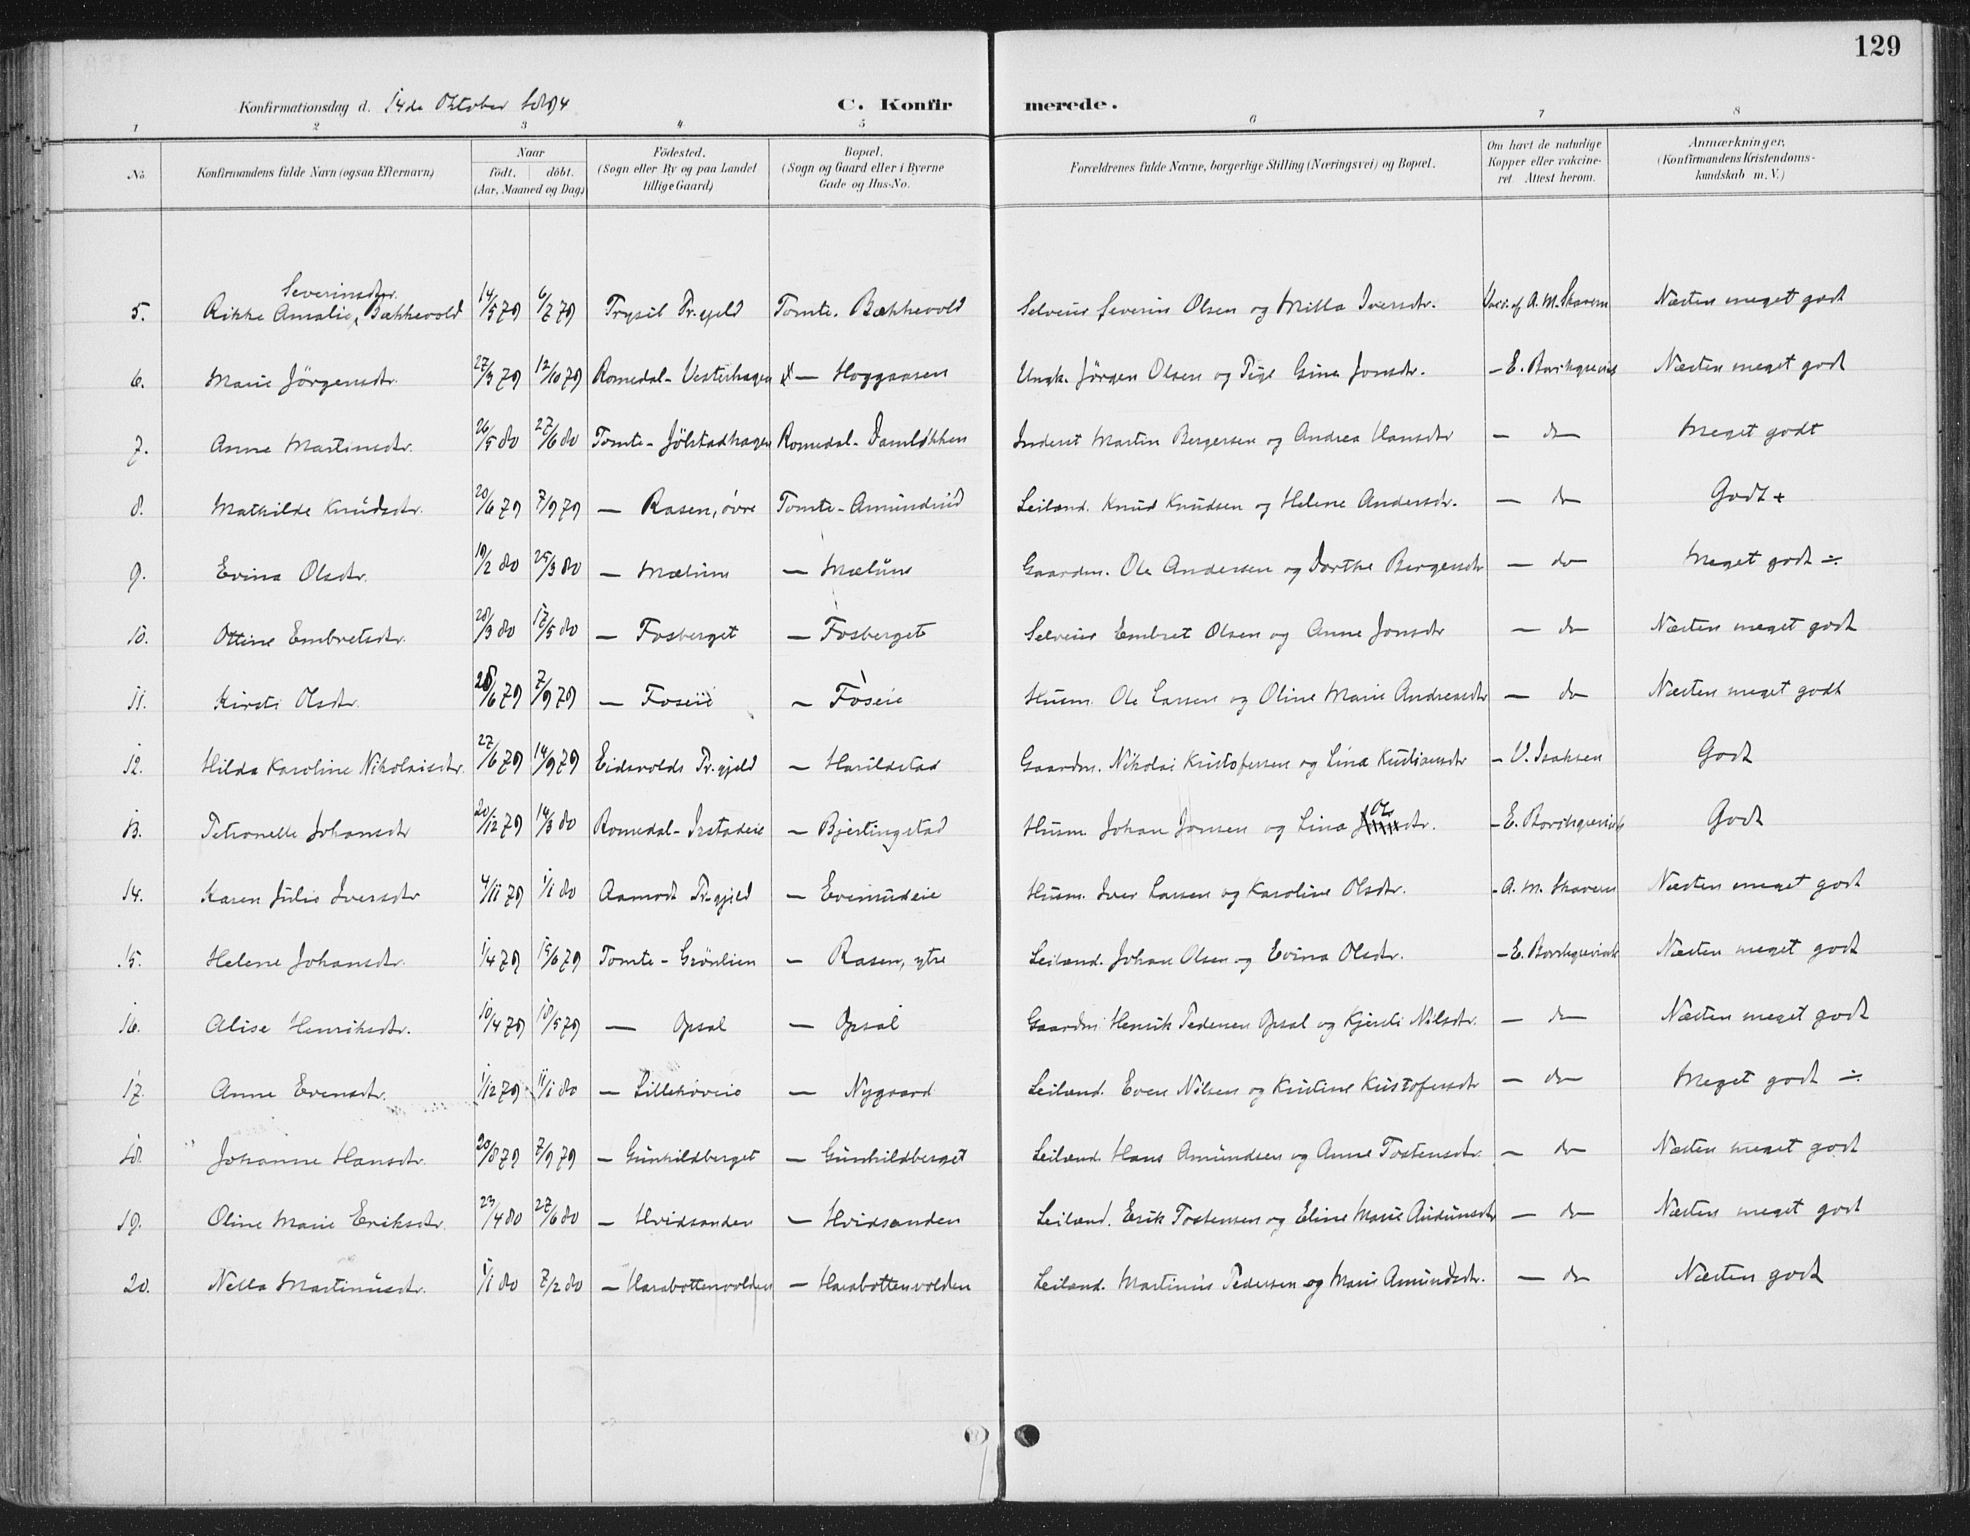 129
Konfirmationsdag d. 14de Oktober 1894 C. Konfirmerede.
1 2 3 4 5 6 7 8
No. Konfirmandens fulde Navn (ogsaa Efternavn) Naar født. døbt. (Aar, Maaned og Dag) Fødested. (Sogn eller By og paa Landet tillige Gaard) Bopæl. (Sogn og Gaard eller i Byerne Gade og Hus-No. Forældrenes fulde Navne, borgerlige Stilling (Næringsvei) og Bopæl. Om havt de naturlige Kopper eller vakcineret. Attest herom. Anmærkninger, (Konfirmandens Kristendomskundskab m. V.)
5. Rikke Amalie Severinsdtr. Bækkevold 14/5 79 6/7 79 Trysil Pr.gjeld Tomte. Bækkevold Selveier Severin Olsen og Milla Iversdtr. Vacc. af A. M. Skaven Næsten meget godt
6. Marie Jörgensdtr. 27/3 79 12/10 79 Romedal - Vesterhagen — Hoggaasen Ungk. Jörgen Olsen og Pige Gina Jonsdtr. - E. Borchgrevink Næsten meget godt
7. Anne Martinsdtr. 26/5 80 27/6 80 Tomte - Jölstadhagen Romedal - Damlökken Inderst Martin Bergersen og Andrea Hansdtr — do Meget godt
8. Mathilde Knudsdtr. 20/6 79 7/9 79 — Rasen, övre Tomte - Amundrud Leilænd. Knud Knudsen og Helene Andersdtr. — do Godt +
9. Evina Olsdtr. 19/2 80 25/3 80 — Mælum — Mælum Gaardm. Ole Andersen og Dorthe Bergersdtr — do Meget godt ÷
10. Ottine Embretsdtr. 28/3 80 17/5 80 — Fosberget — Fosberget Selveier Embret Olsen og Anne Jonsdtr — do Næsten meget godt
11. Kirsti Olsdtr. 28/6 79 7/9 79 — Foseie — Foseie Husm. Ole Larsen og Oline Marie Andreasdtr — do Næsten meget godt
12. Hilda Karoline Nikolaisdtr. 27/6 79 14/9 79 Eidsvolds Pr.gjeld — Harildstad Gaardm. Nikolai Kristofersen og Lina Kristiansdtr - V. Isaksen Godt
13. Petronelle Johansdtr 20/12 79 14/3 80 Romedal - Istadeie — Bjertingstad Husm. Johan Jonsen og Lina Olsdtr. - E. Borchgrevink Godt
14. Karen Julie Iversdtr 4/11 79 1/1 80 Aamodt Pr.gjeld — Evenrudeie Husm. Iver Larsen og Karoline Olsdtr. - A. M. Skaven Næsten meget godt
15. Helene Johansdtr. 1/4 79 15/6 79 Tomte - Grönlien — Rasen, ytre Leilænd. Johan Olsen og Evina Olsdtr. - E. Borchgrevink Næsten meget godt
16. Alise Henriksdtr. 10/4 79 18/5 79 — Opsal — Opsal Gaardm. Henrik Pedersen Opsal og Kjersti Nilsdtr. — do Næsten meget godt
17. Anne Evensdtr. 1/12 79 11/1 80 — Lillehoveie — Nygaard Leilænd. Even Nilsen og Kristine Kristofersdtr — do Meget godt ÷
18. Johanne Hansdtr. 20/8 79 7/9 79 — Gunhildberget — Gunhildberget Leilænd. Hans Amundsen og Anne Tostensdtr. — do Næsten meget godt
19. Oline Marie Eriksdtr. 23/4 80 27/6 80 — Hvidsanden — Hvidsanden Leilænd. Erik Tostensen og Eline Marie Audunsdtr — do Næsten meget godt
20. Nella Martinusdtr. 1/1 80 7/2 80 — Harabottenvolden — Harabottenvolden Leilænd. Martinus Pedersen og Marie Amundsdtr. — do Næsten godt